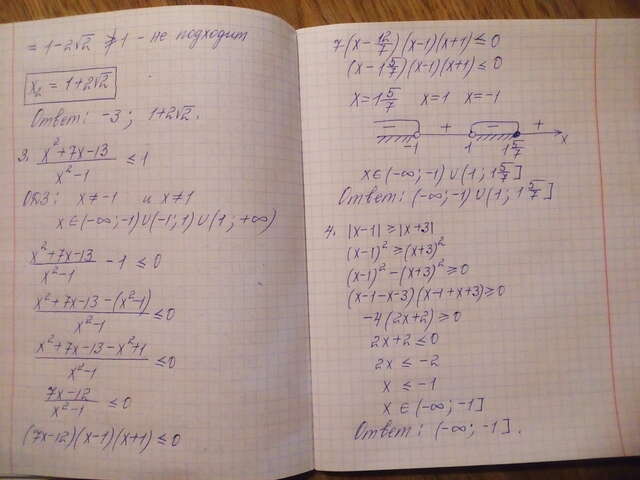 = 1-2√2 ≯ 1 - не подходит
x₂ = 1+2√2
Ответ: -3; 1+2√2.
3. (x²+7x-13)/(x²-1) ≤ 1
ОДЗ: x≠-1 и x≠1
x∈(-∞;-1)∪(-1;1)∪(1;+∞)
(x²+7x-13)/(x²-1) - 1 ≤ 0
(x²+7x-13-(x²-1))/(x²-1) ≤ 0
(x²+7x-13-x²+1)/(x²-1) ≤ 0
(7x-12)/(x²-1) ≤ 0
(7x-12)(x-1)(x+1) ≤ 0
7(x-12/7)(x-1)(x+1) ≤ 0
(x-1 5/7)(x-1)(x+1) ≤ 0
x=1 5/7 x=1 x=-1
- + - +
-1 1 1 5/7 x
x∈(-∞;-1)∪(1;1 5/7]
Ответ: (-∞;-1)∪(1;1 5/7]
4. |x-1| ≥ |x+3|
(x-1)² ≥ (x+3)²
(x-1)² - (x+3)² ≥ 0
(x-1-x-3)(x-1+x+3) ≥ 0
-4(2x+2) ≥ 0
2x+2 ≤ 0
2x ≤ -2
x ≤ -1
x∈(-∞;-1]
Ответ: (-∞;-1].